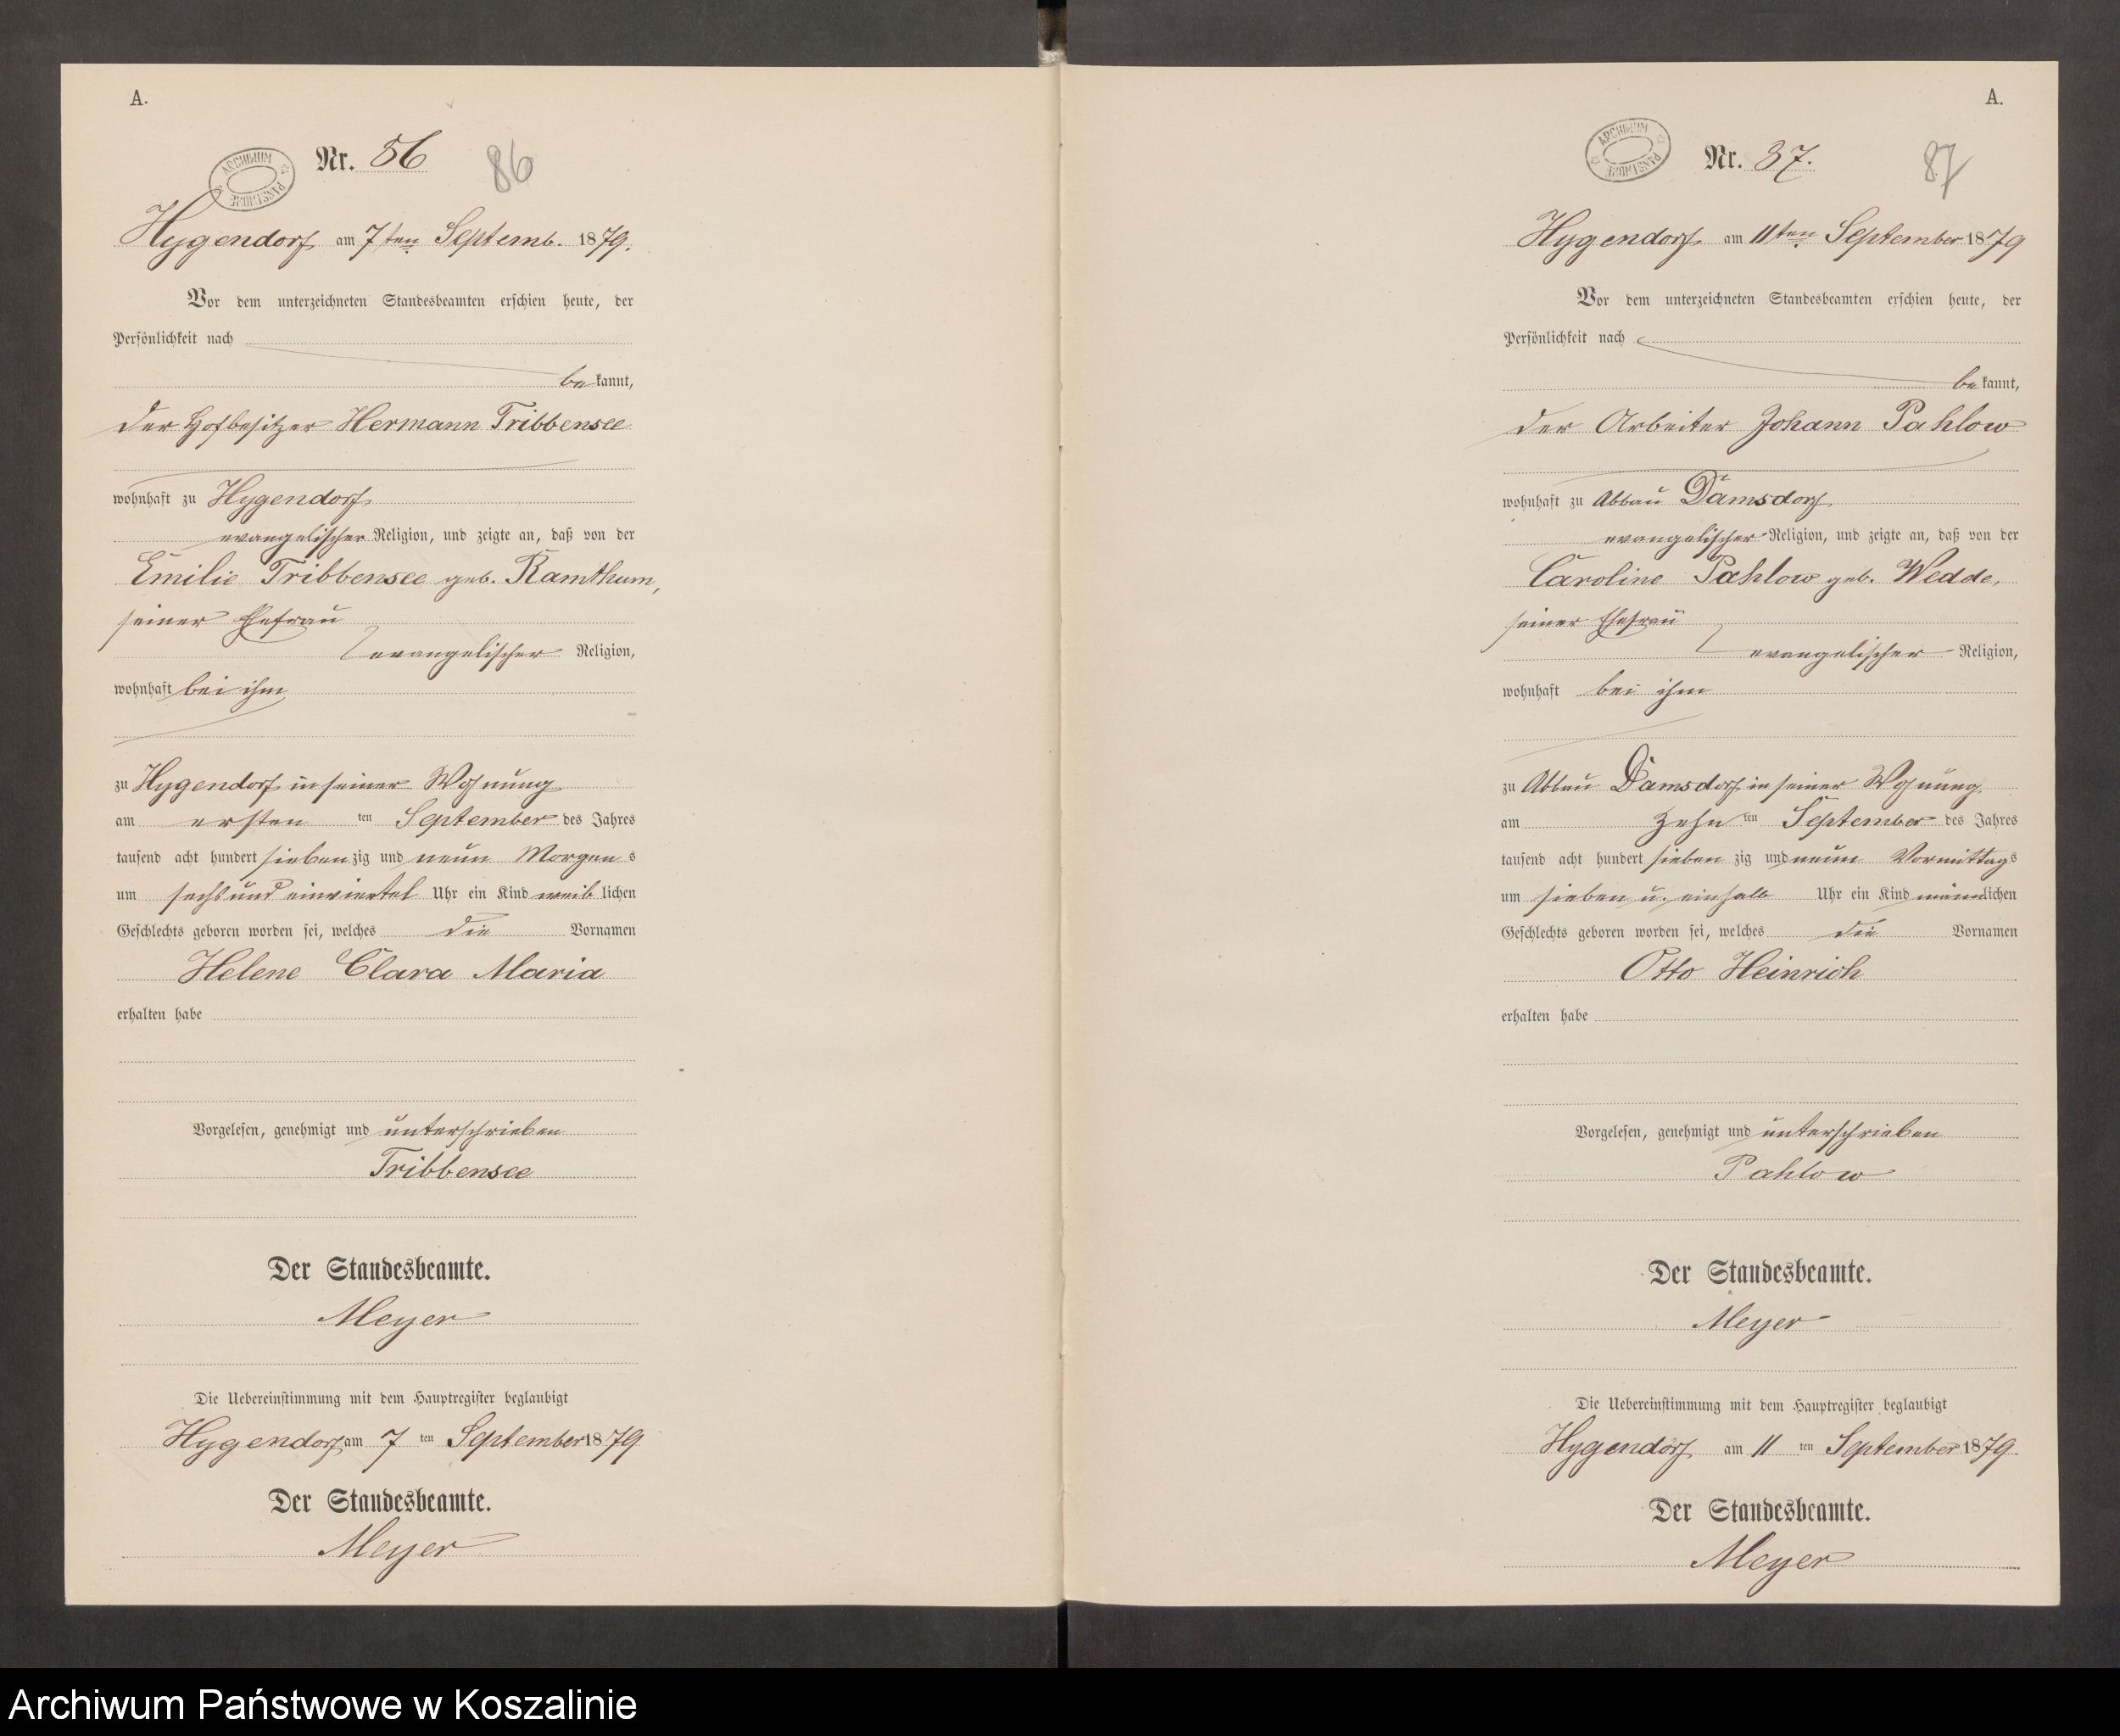 A.
ARCHIWUM PAŃSTWOWE
Nr. 86
86
Hygendorf am 7ten Septemb. 1879.
Vor dem unterzeichneten Standesbeamten erschien heute, der
Persönlichkeit nach
bekannt,
der Hofbesitzer Hermann Tribbensee
wohnhaft zu Hygendorf
evangelischer Religion, und zeigte an, daß von der
Emilie Tribbensee geb. Ramthum,
seiner Ehefrau
evangelischer Religion,
wohnhaft bei ihm
zu Hygendorf in seiner Wohnung
am ersten ten September des Jahres
tausend acht hundert siebenzig und neun Morgens
um sechs und einviertel Uhr ein Kind weiblichen
Geschlechts geboren worden sei, welches die Vornamen
Helene Clara Maria
erhalten habe
Vorgelesen, genehmigt und unterschrieben
Tribbensee
Der Standesbeamte.
Meyer
Die Uebereinstimmung mit dem Hauptregister beglaubigt
Hygendorf am 7 ten September 1879
Der Standesbeamte.
Meyer
A.
ARCHIWUM PAŃSTWOWE
Nr. 87.
87
Hygendorf am 11ten September 1879
Vor dem unterzeichneten Standesbeamten erschien heute, der
Persönlichkeit nach
bekannt,
der Arbeiter Johann Pahlow
wohnhaft zu Abbau Damsdorf
evangelischer Religion, und zeigte an, daß von der
Caroline Pahlow geb. Wedde,
seiner Ehefrau
evangelischer Religion,
wohnhaft bei ihm
zu Abbau Damsdorf in seiner Wohnung
am zehn ten September des Jahres
tausend acht hundert siebenzig und neun Vormittags
um sieben u. einhalb Uhr ein Kind männlichen
Geschlechts geboren worden sei, welches die Vornamen
Otto Heinrich
erhalten habe
Vorgelesen, genehmigt und unterschrieben
Pahlow
Der Standesbeamte.
Meyer
Die Uebereinstimmung mit dem Hauptregister beglaubigt
Hygendorf am 11 ten September 1879.
Der Standesbeamte.
Meyer
Archiwum Państwowe w Koszalinie